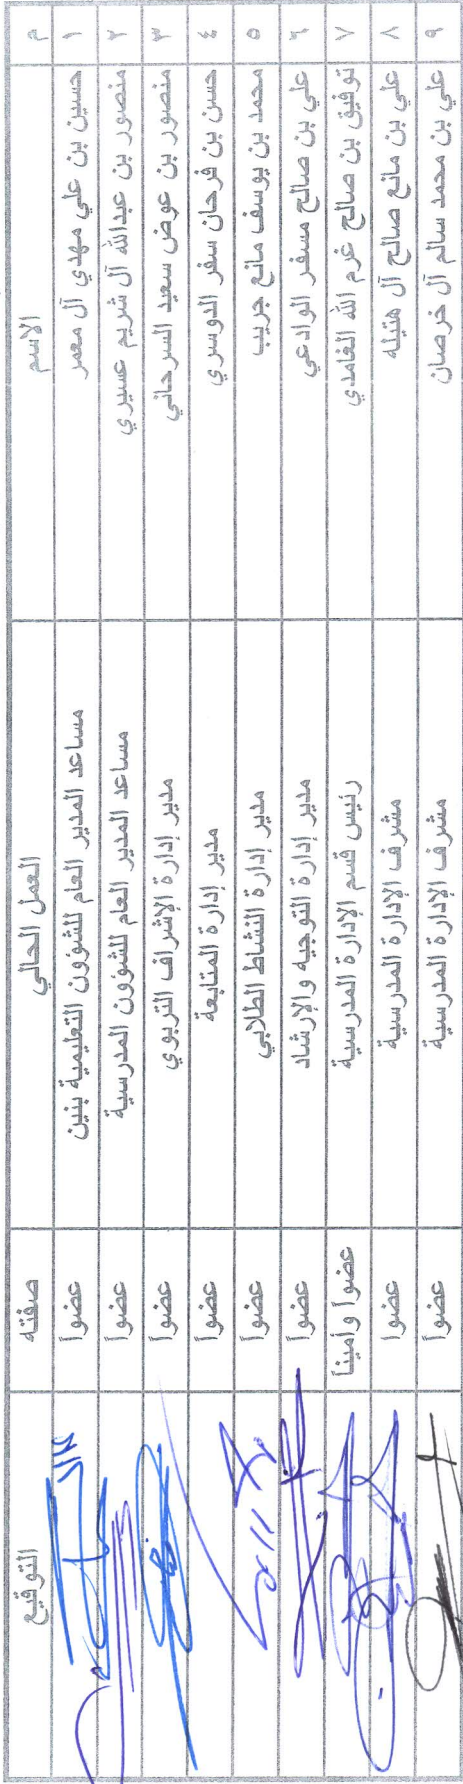 م الاسم العمل الحالي صفته التوقيع
١ حسين بن علي مهدي آل معمر مساعد المدير العام للشؤون التعليمية بنين عضواً
٢ منصور بن عبدالله آل شريم عسيري مساعد المدير العام للشؤون المدرسية عضواً
٣ منصور بن عوض سعيد السرحاني مدير إدارة الإشراف التربوي عضواً
٤ حسن بن فرحان سفر الدوسري مدير إدارة المتابعة عضواً
٥ محمد بن يوسف مانع جريب مدير إدارة النشاط الطلابي عضواً
٦ علي بن صالح مسفر الوادعي مدير إدارة التوجيه والإرشاد عضواً
٧ توفيق بن صالح غرم الله الغامدي رئيس قسم الإدارة المدرسية عضواً وأميناً
٨ علي بن مانع صالح آل هتيله مشرف الإدارة المدرسية عضواً
٩ علي بن محمد سالم آل خرصان مشرف الإدارة المدرسية عضواً